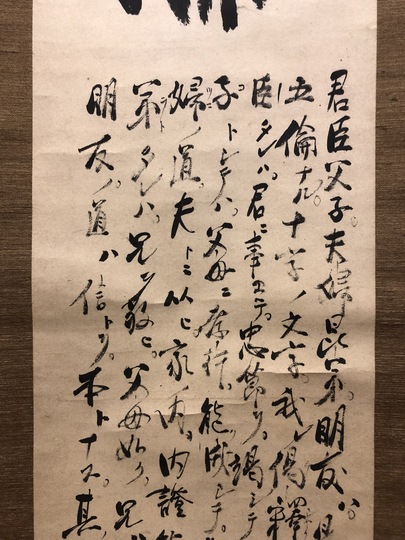 君臣父子。夫婦昆弟。朋友ハ。
五倫ナル。十字ノ文字。我レ偈釋
臣タレハ。君ニ事エテ。忠節ヲ。竭シテ
子トシテハ。父母ニ孝行。能成シテ。
婦ノ道。夫トニ从ヒ。家ノ内。内證
弟タレハ。兄ヲ敬ヒ。父母如ク。兄
朋友ノ道ハ信トヲ。本トナス。其